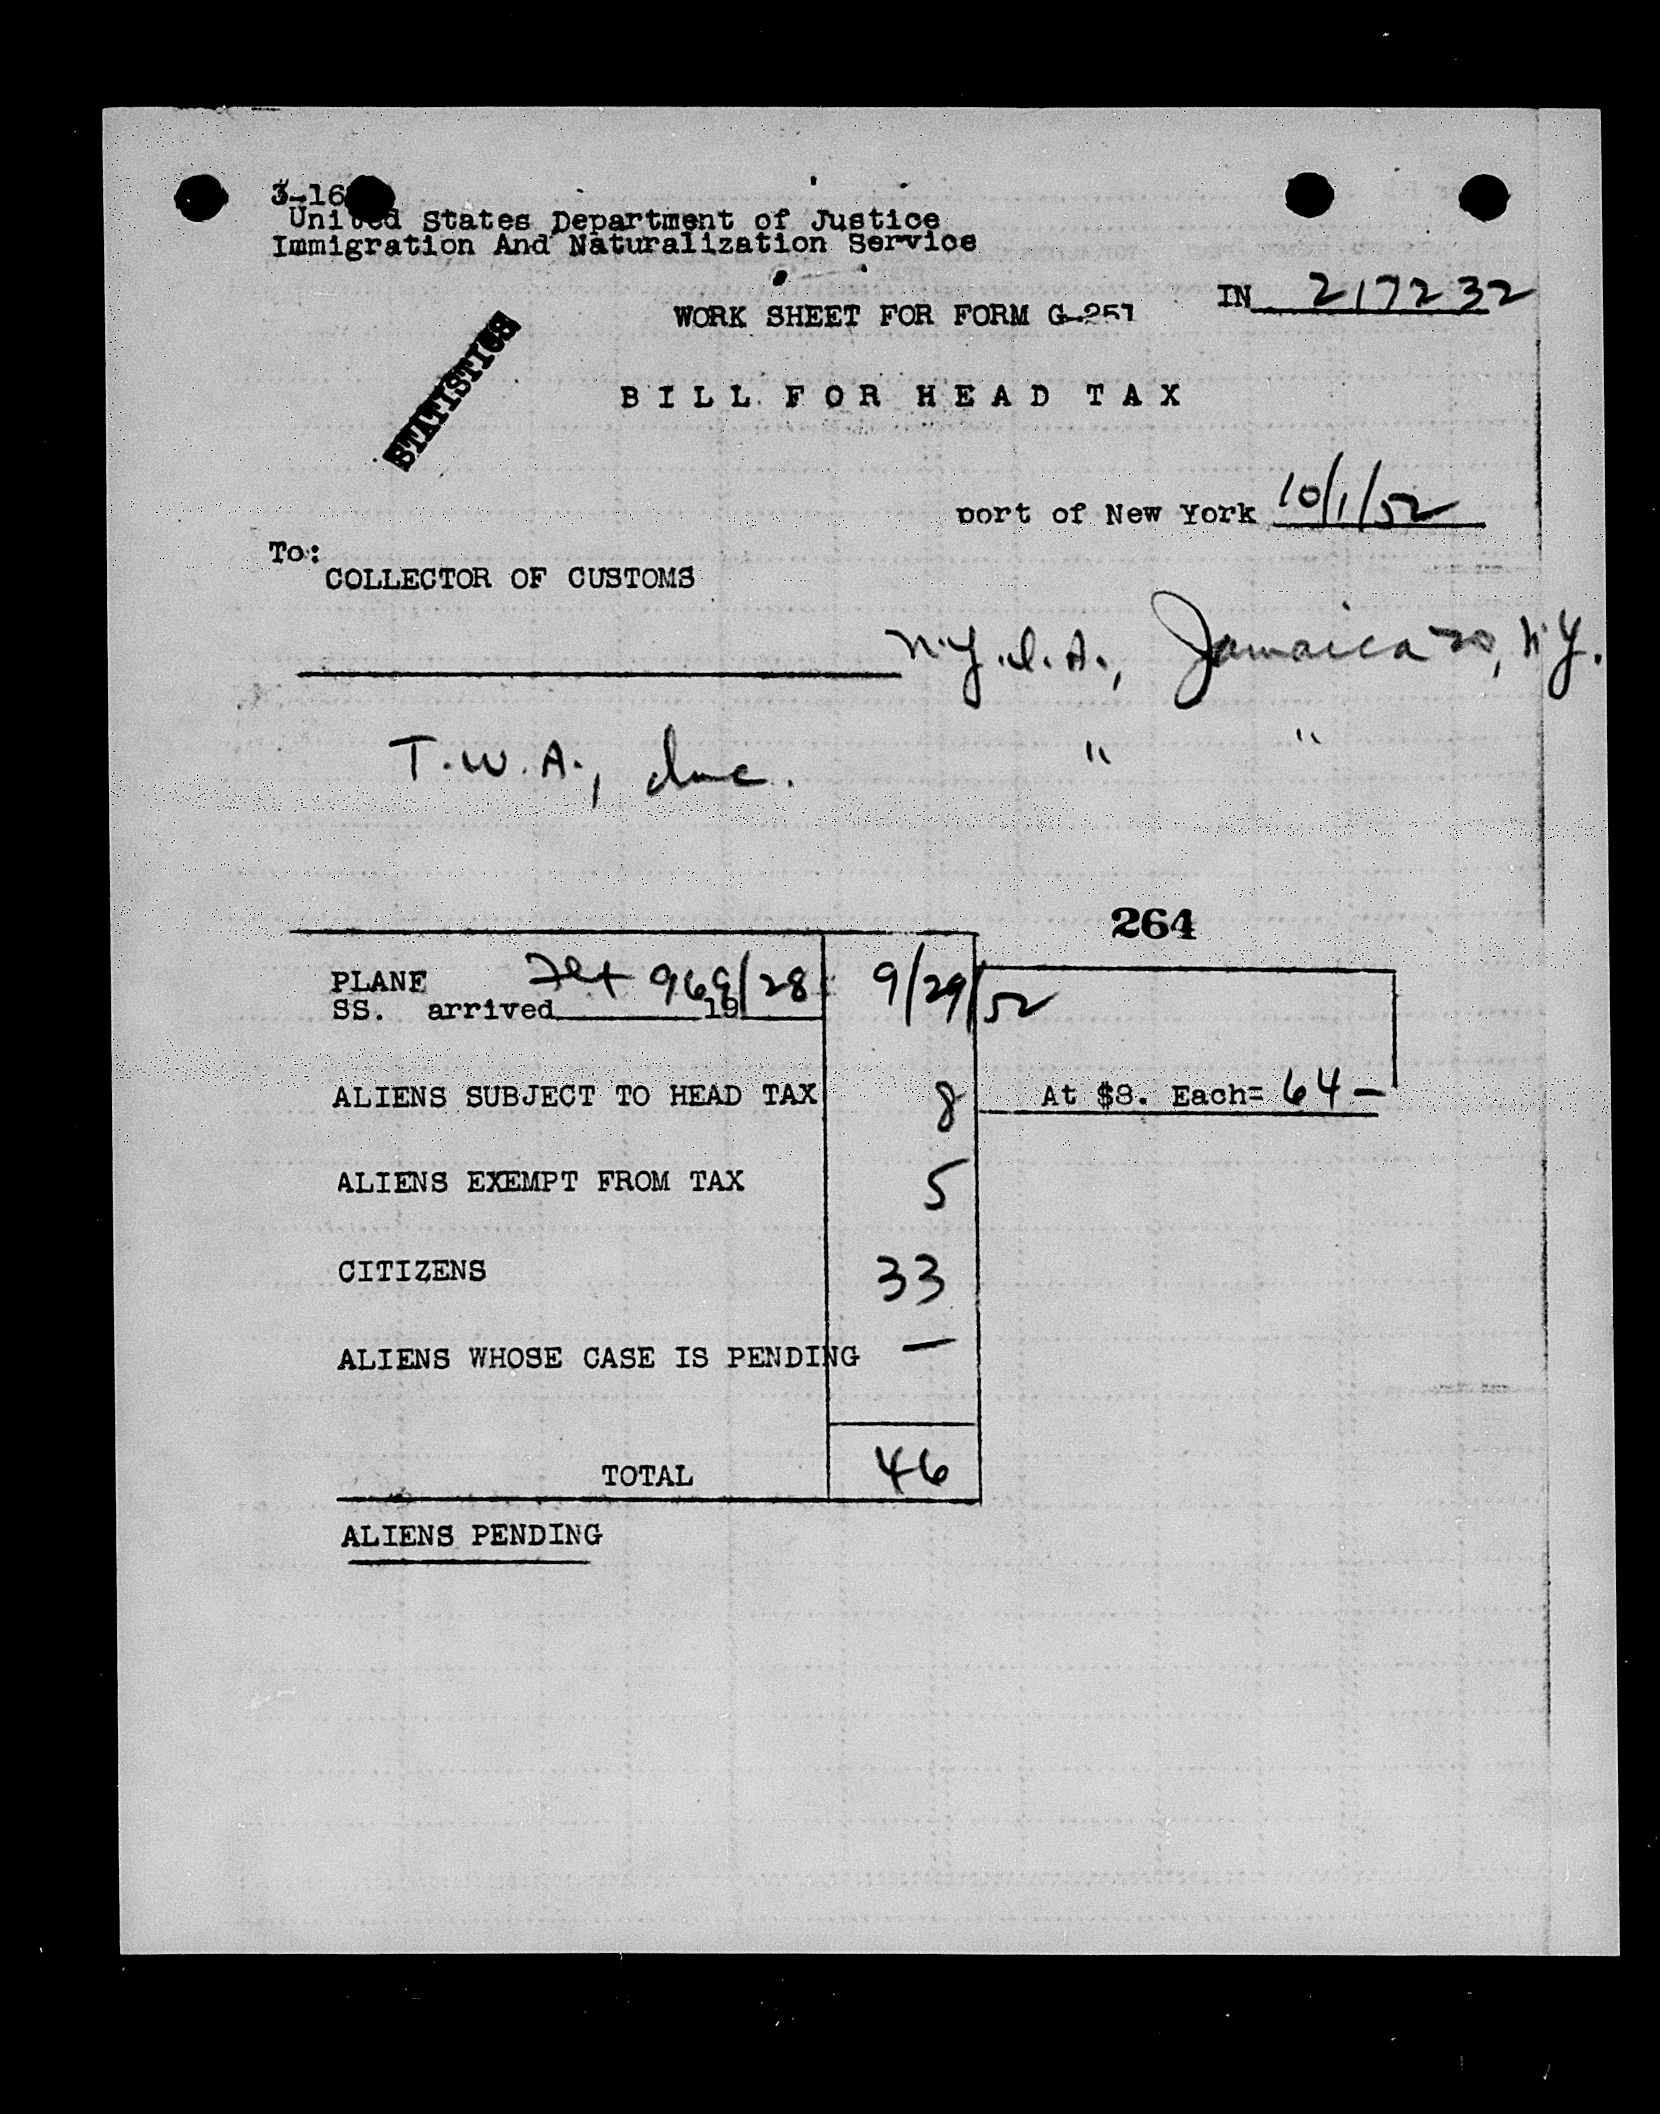 3-16
United States Department of Justice
Immigration And Naturalization Service
IN 217232
WORK SHEET FOR FORM G-251
STATISTICS
BILL FOR HEAD TAX
port of New York 10/1/52
To:
COLLECTOR OF CUSTOMS
N.Y.I.A., Jamaica 30, N.Y.
T.W.A., Inc. " "
264
PLANE Flt 969/28 9/29/52
SS. arrived 19
ALIENS SUBJECT TO HEAD TAX 8 At $8. Each= 64 —
ALIENS EXEMPT FROM TAX 5
CITIZENS 33
ALIENS WHOSE CASE IS PENDING —
TOTAL 46
ALIENS PENDING